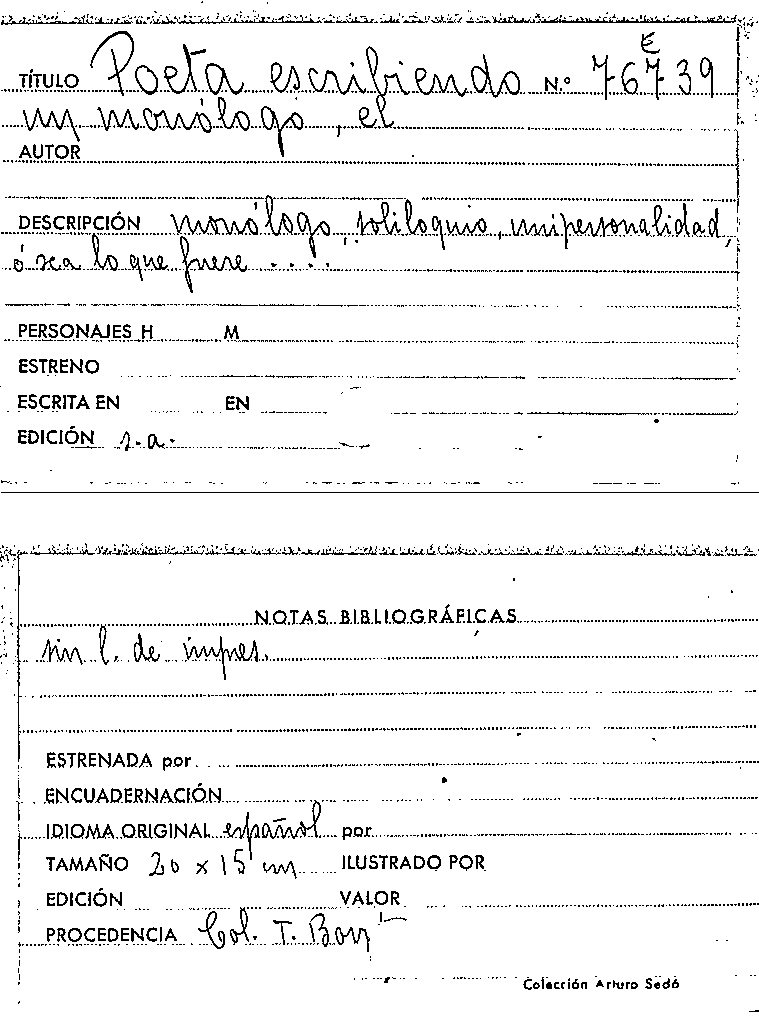 E
TÍTULO Poeta escribiendo N.º 76739
un monólogo, el
AUTOR
DESCRIPCIÓN monólogo, soliloquio, unipersonalidad,
ó sea lo que fuere ....
PERSONAJES H M
ESTRENO
ESCRITA EN EN
EDICIÓN s.a.
NOTAS BIBLIOGRÁFICAS
sin l. de impres.
ESTRENADA por
ENCUADERNACIÓN
IDIOMA ORIGINAL español por
TAMAÑO 20 x 15 cm ILUSTRADO POR
EDICIÓN VALOR
PROCEDENCIA Col. T.
Colección Arturo Sedó